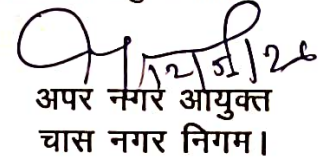 12/5/26
अपर नगर आयुक्त
चास नगर निगम।